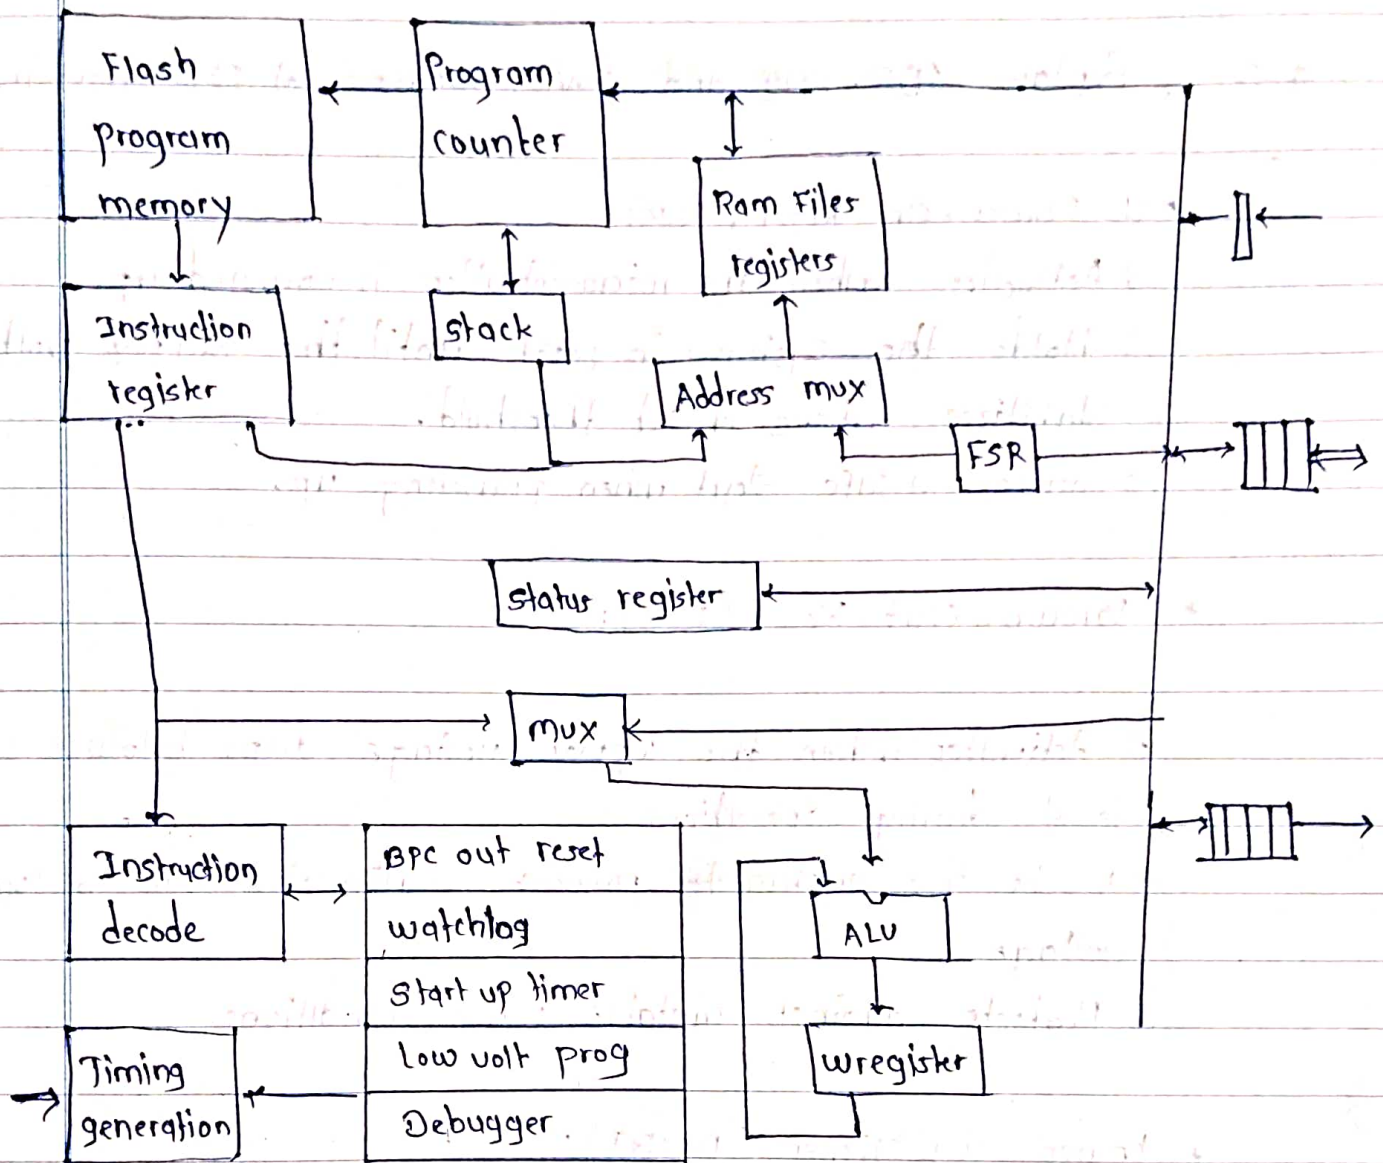 Flash
program
memory
Program
counter
Ram Files
registers
Instruction
register
stack
Address mux
FSR
status register
mux
Instruction
decode
BPC out reset
watchlog
Start up timer
Low volt prog
Debugger
ALU
wregister
Timing
generation